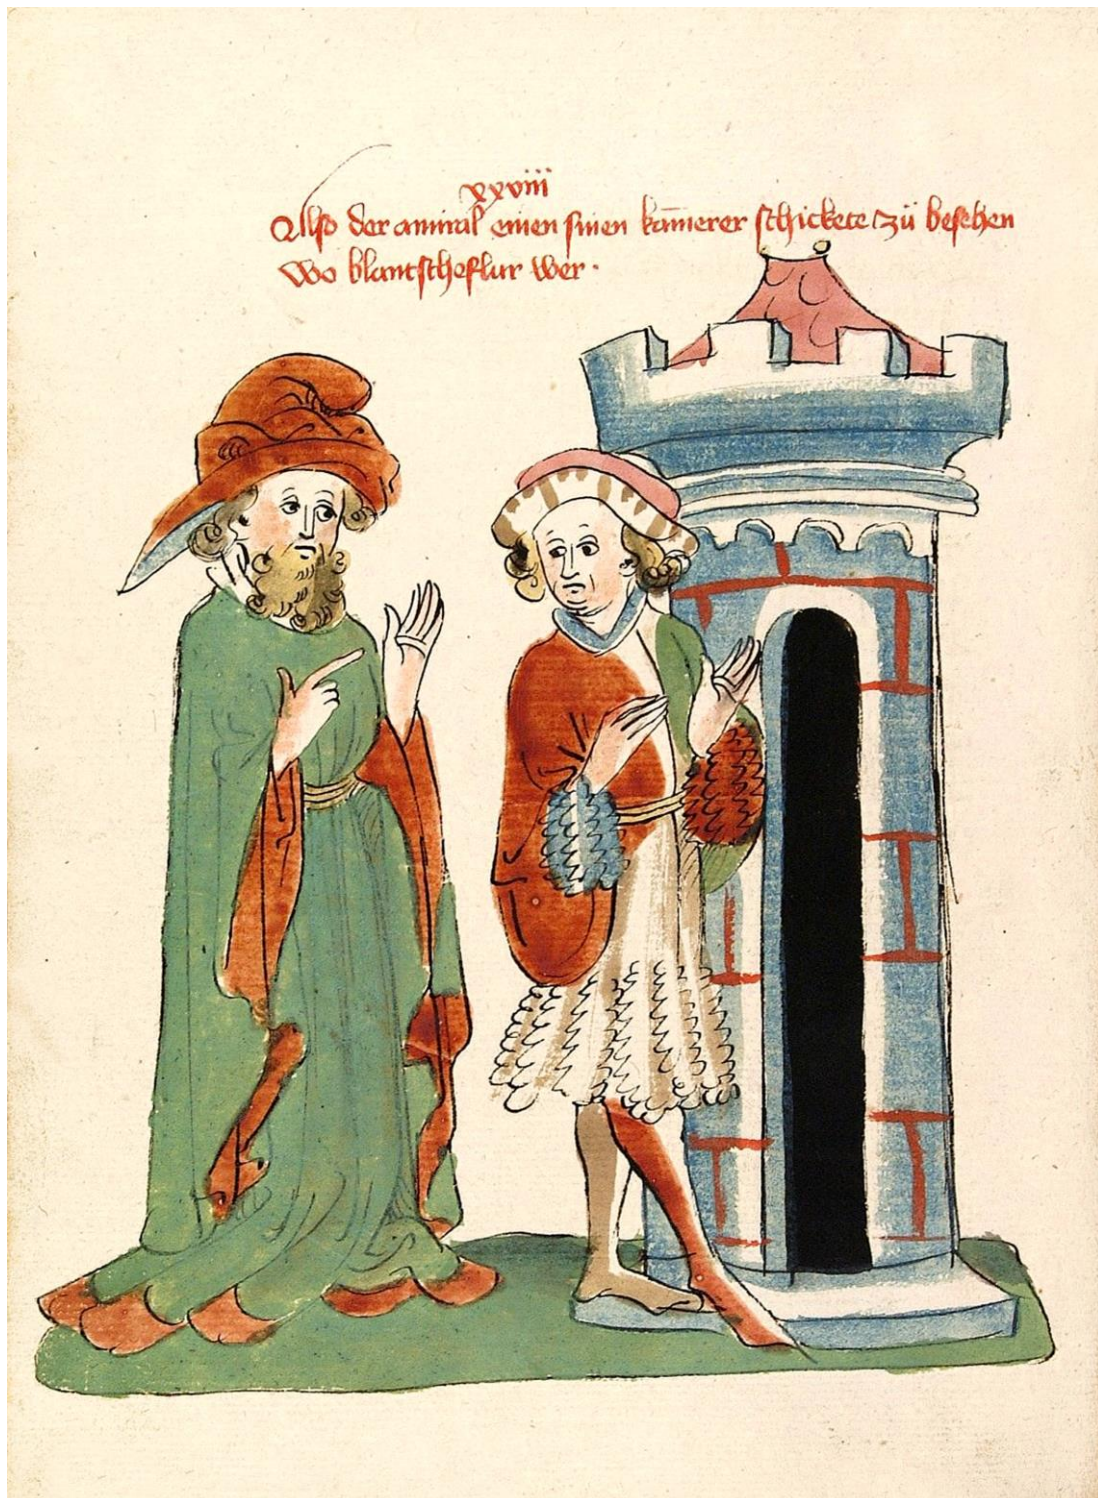 xxviii
Also der amiral einen sinen kam̄erer schickete zü besehen
wo blantscheflur wer.